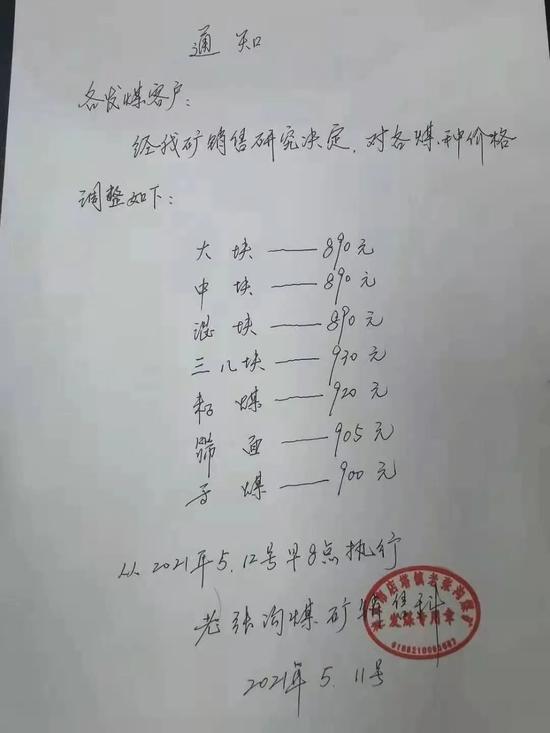 通知
各发煤客户：
经我矿销售研究决定，对各煤种价格
调整如下：
大块——890元
中块——890元
混块——890元
三八块——930元
籽煤——920元
筛面——905元
子煤——900元
从2021年5.12号早8点执行
老张沟煤矿销售科
店塔镇老张沟煤矿
发煤专用章
2021年5.11号